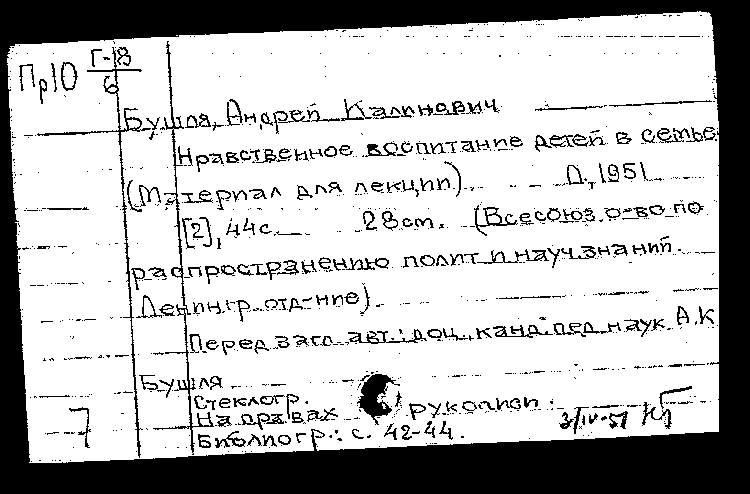 Пр10 Г-18/6
Бушля, Андрей Калинович
Нравственное воспитание детей в семье
(Материал для лекции). Л., 1951
[2], 44с. 28cm. (Всесоюз. о-во по
распространению полит и науч. знаний.
Ленингр. отд-ние).
Перед загл. авт.: доц. канд. пед. наук А.К
Бушля
Стеклогр.
На правах рукописи.
7
Библиогр.: с. 42-44.
3/IV-51